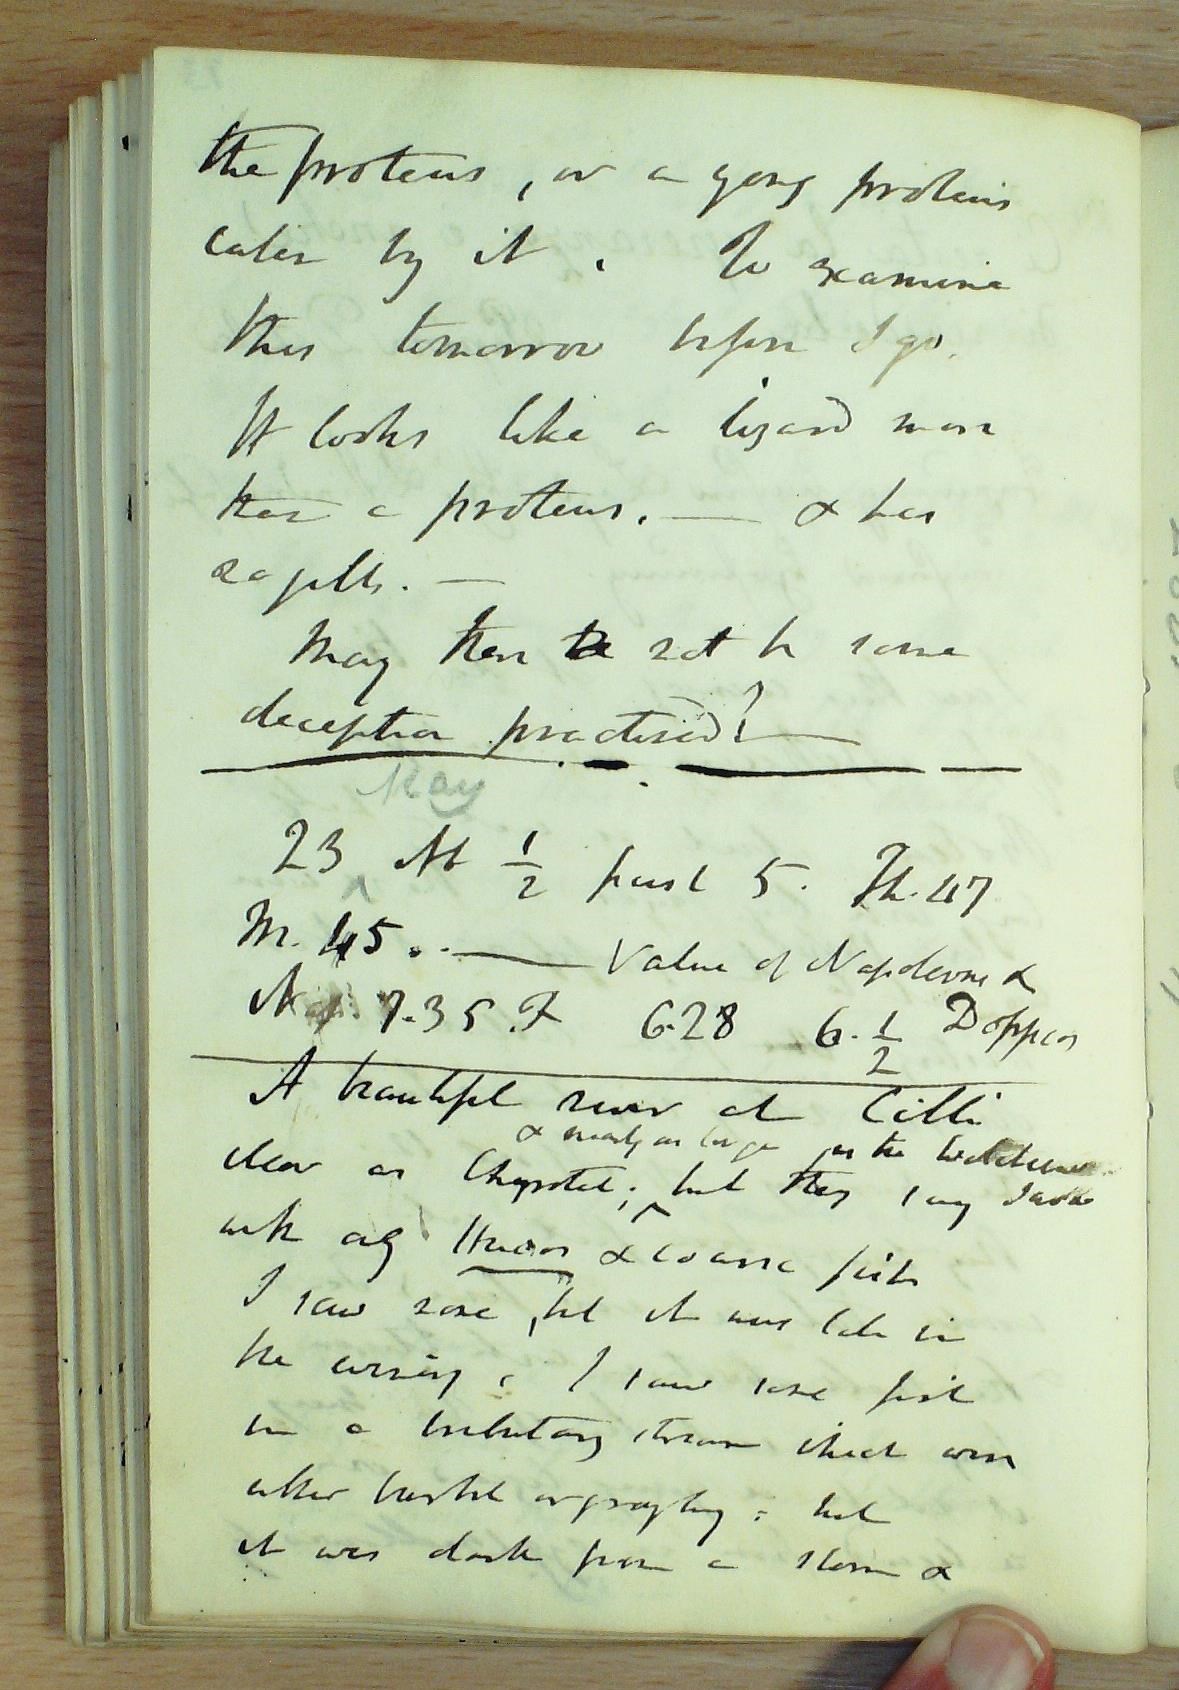 the proteus, or a yong proteus
eaten by it. To examine
this tomorrow before I go.
It looks like a lizard more
than a proteus. — & has
no gills. —
May there be not be some
deception practised? —
May
23 At 1/2 past 5. Th. 47
M. 45. — Value of Napoleons &
Nap. 7.35. F 628 6. 1/2
A beautiful river at Cilli
& nearly as large as the
clear as ; but they say
with only Huchos & coarse fish
I saw none, but it was late in
the evening; I saw some fish
in a tributary stream which were
either or grayling; but
it was dark from a storm &